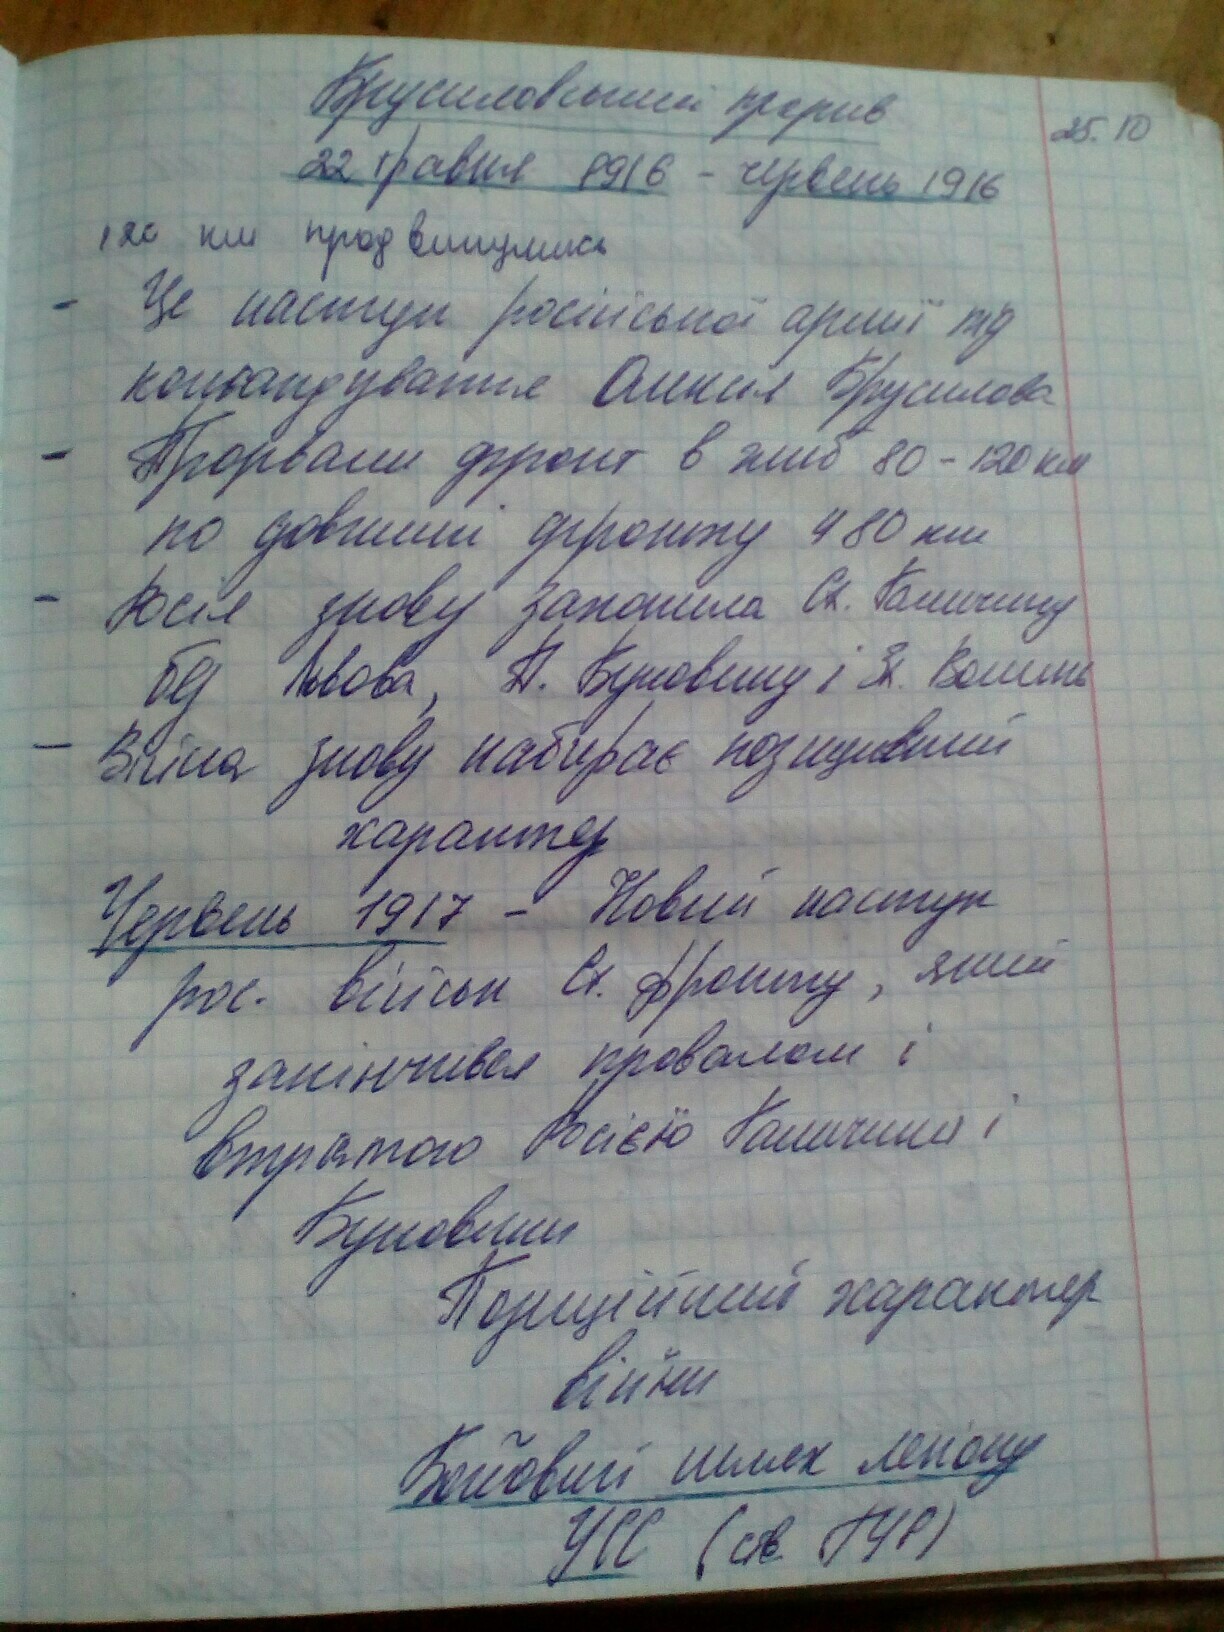 Брусиловський прорив
25.10
22 травня 1916 - червень 1916
120 км продвинулись
- Це наступ російської армії під
командування Олексія Брусилова
- Прорвали фронт в глиб 80-120 км
по довжині фронту 480 км
- Росія знову захопила Сх. Галичину
без Львова, П. Буковину і Зх. Волинь
- Війна знову набирає позиційний
характер
Червень 1917 - Новий наступ
рос. військ Сх. фронту, який
закінчився провалом і
втратою Росією Галичини і
Буковини
Позиційний характер
війни
Бойовий шлях легіону
УСС (ств. ГУР)